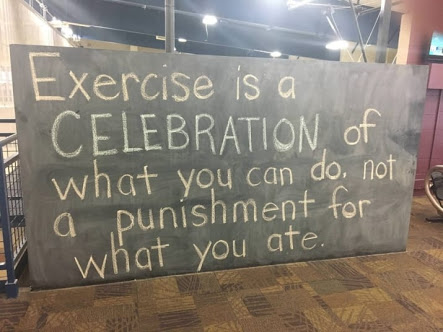 Exercise is a
CELEBRATION of
what you can do, not
a punishment for
what you ate.